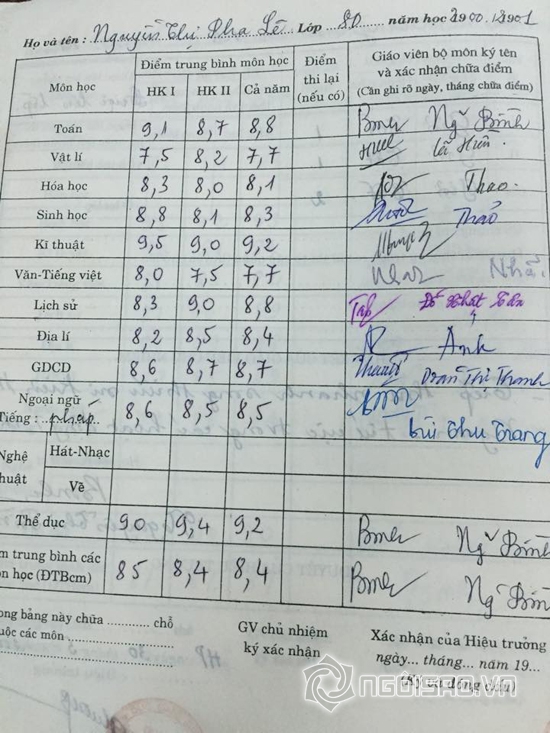 Họ và tên : Nguyễn Thị Pha Lê Lớp 8D năm học 2000.12001
Môn học Điểm trung bình môn học Điểm thi lại (nếu có) Giáo viên bộ môn ký tên và xác nhận chữa điểm (Cần ghi rõ ngày, tháng chữa điểm)
HK I HK II Cả năm
Toán 9,1 8,7 8,8 Ng Bình
Vật lí 7,5 8,2 7,7
Hóa học 8,3 8,0 8,1 Thao
Sinh học 8,8 8,1 8,3 Thảo
Kĩ thuật 9,5 9,0 9,2
Văn-Tiếng việt 8,0 7,5 7,7
Lịch sử 8,3 9,0 8,8
Địa lí 8,2 8,5 8,4 Anh
GDCD 8,6 8,7 8,7 Trần Thị Thanh
Ngoại ngữ
Tiếng : pháp 8,6 8,5 8,5 Bùi Thu Trang
Nghệ
thuật
Hát-Nhạc
Vẽ
Thể dục 90 9,4 9,2 Ng Bình
m trung bình các
ôn học (ĐTBcm) 85 8,4 8,4 Ng Bình
ong bảng này chữa ............ chỗ
uộc các môn ....................
GV chủ nhiệm
ký xác nhận
Xác nhận của Hiệu trưởng
ngày... tháng... năm 19...
(Ký và đóng dấu)
NGOISAO.VN